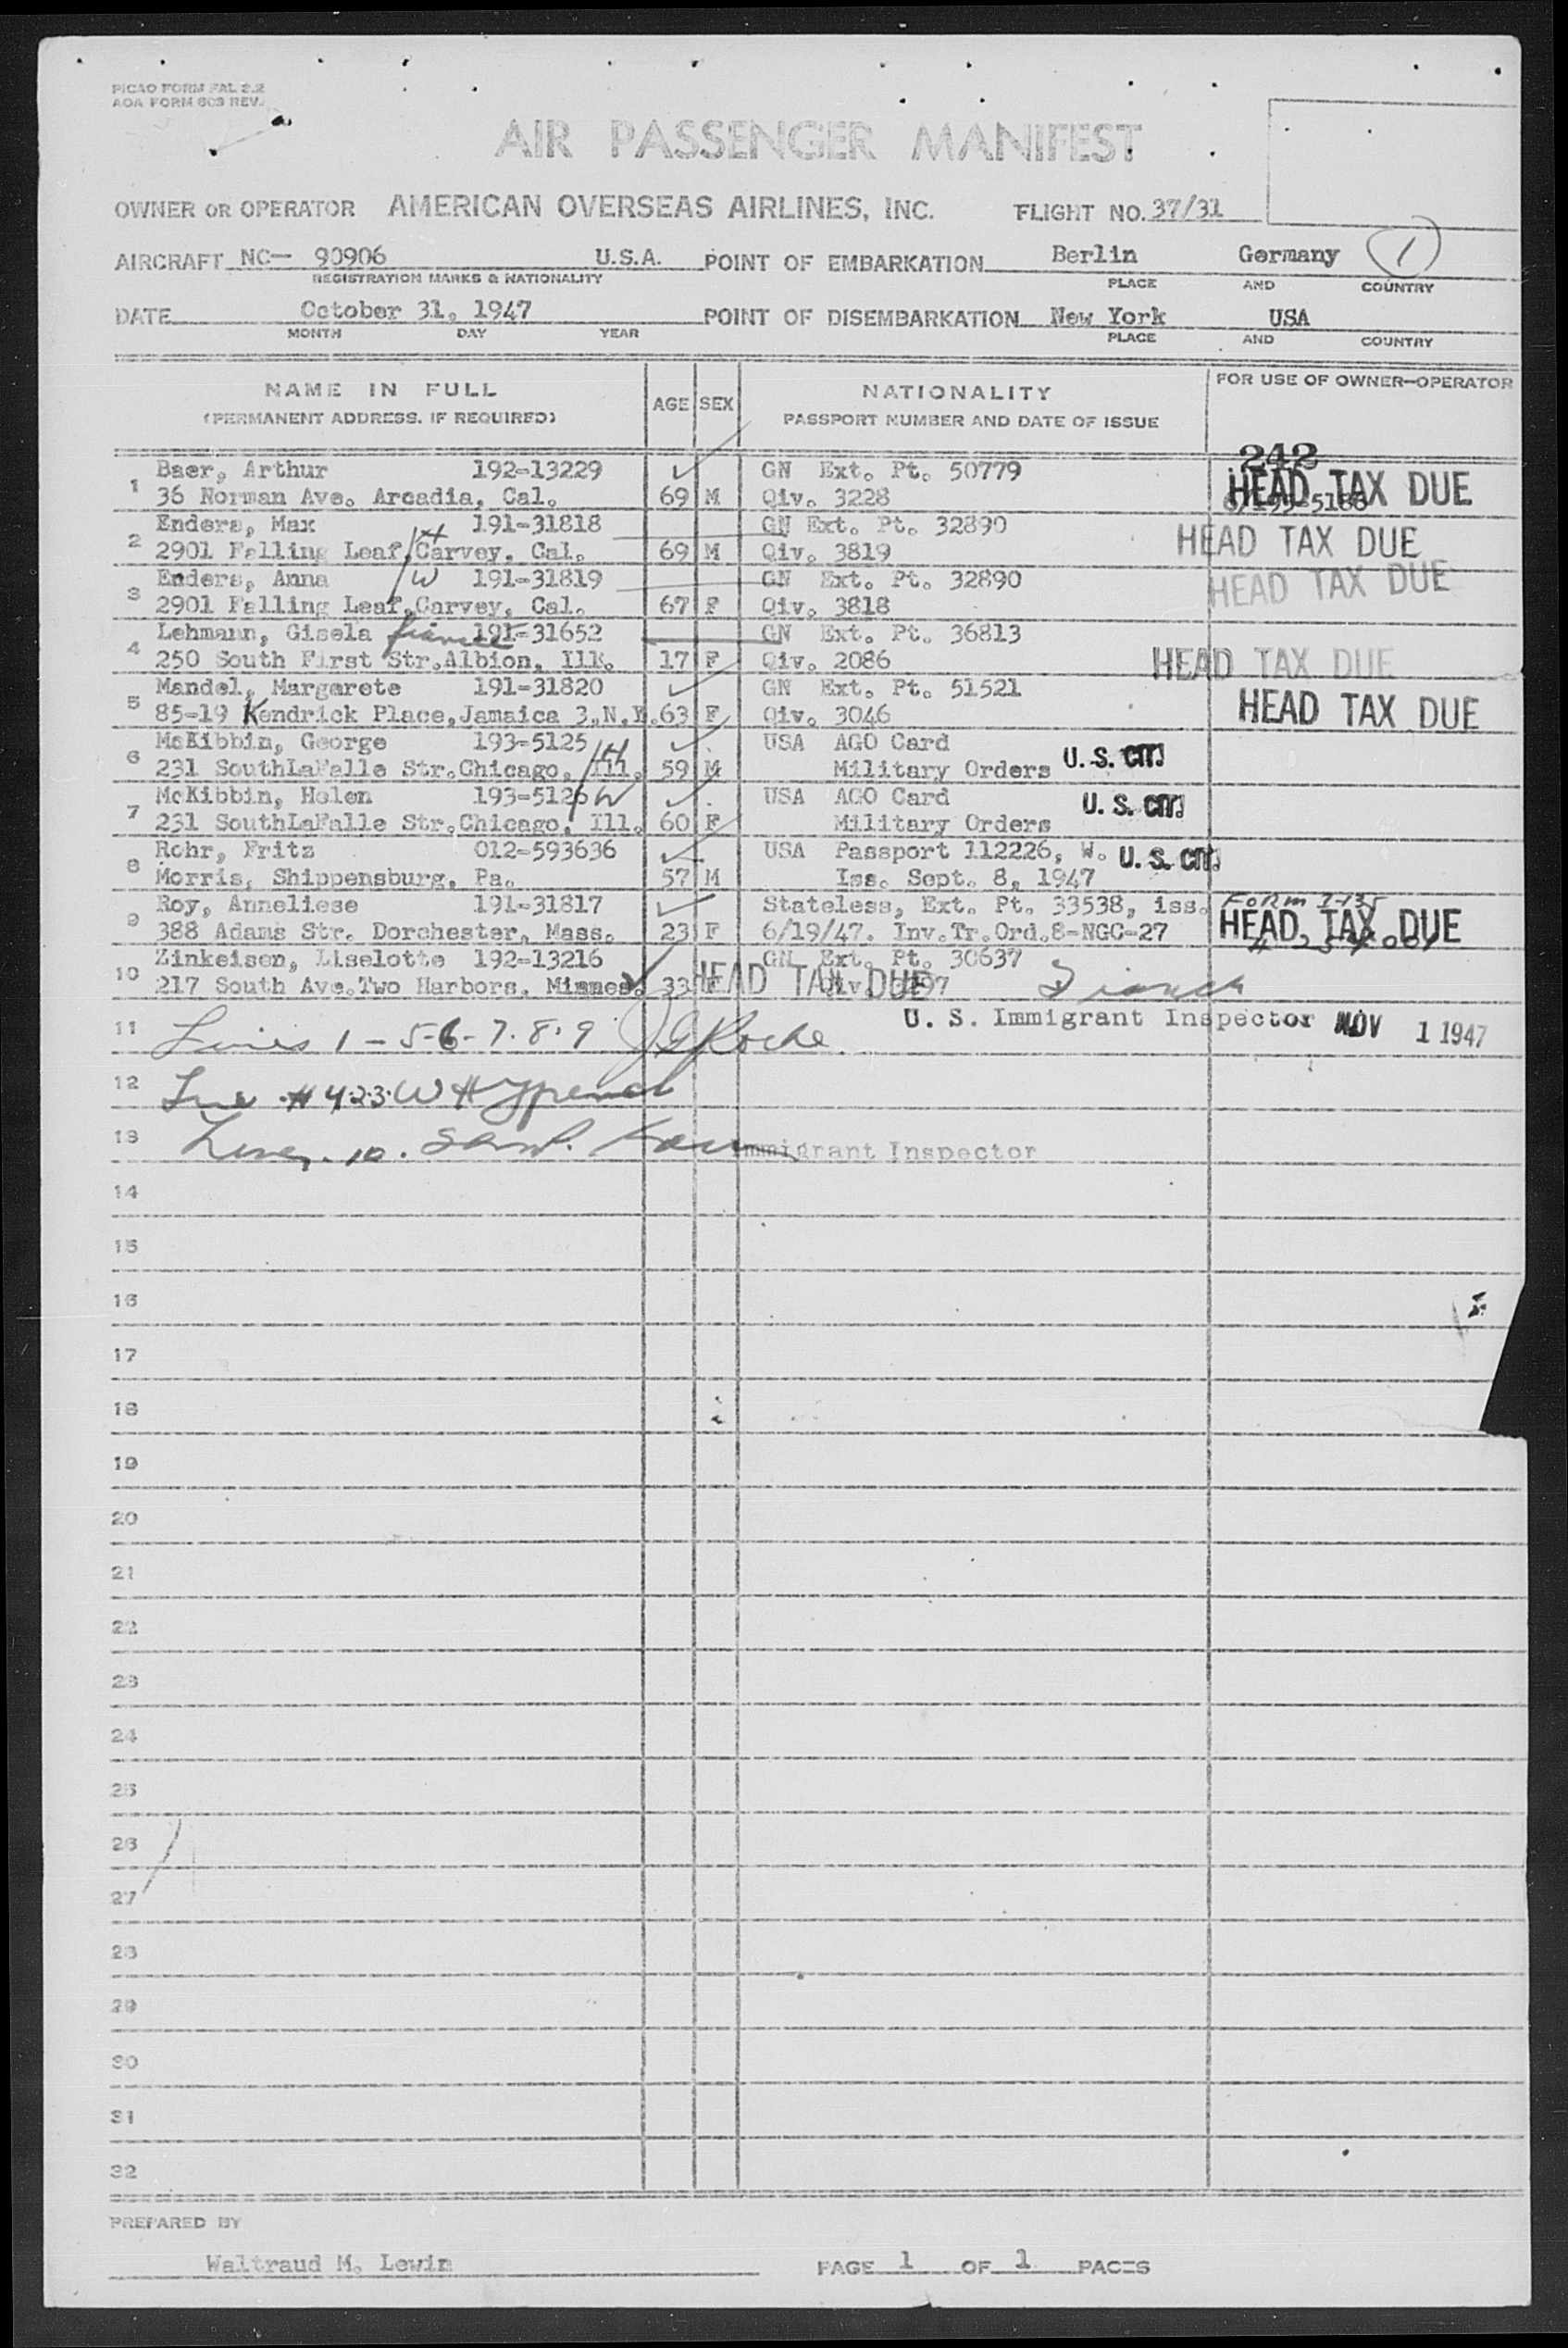 PICAO FORM FAL 2.2
AOA FORM 603 REV.
AIR PASSENGER MANIFEST
OWNER OR OPERATOR AMERICAN OVERSEAS AIRLINES, INC. FLIGHT NO. 37/31
AIRCRAFT NC— 90906 U.S.A. POINT OF EMBARKATION Berlin Germany 1
REGISTRATION MARKS & NATIONALITY PLACE AND COUNTRY
DATE October 31, 1947 POINT OF DISEMBARKATION New York USA
MONTH DAY YEAR PLACE AND COUNTRY
NAME IN FULL AGE SEX NATIONALITY FOR USE OF OWNER—OPERATOR
(PERMANENT ADDRESS, IF REQUIRED) PASSPORT NUMBER AND DATE OF ISSUE
242
1 Baer, Arthur 192-13229 GN Ext. Pt. 50779 HEAD TAX DUE
36 Norman Ave. Arcadia, Cal. 69 M Qiv. 3228
2 Enders, Max H 191-31818 GN Ext. Pt. 32890 HEAD TAX DUE
2901 Falling Leaf, Garvey, Cal. 69 M Qiv. 3819
3 Enders, Anna W 191-31819 GN Ext. Pt. 32890 HEAD TAX DUE
2901 Falling Leaf, Garvey, Cal. 67 F Qiv. 3818
4 Lehmann, Gisela 191-31652 GN Ext. Pt. 36813
250 South First Str. Albion, Ill. 17 F Qiv. 2086 HEAD TAX DUE
5 Mandel, Margarete 191-31820 GN Ext. Pt. 51521
85-19 Kendrick Place, Jamaica 3, N.Y. 63 F Qiv. 3046 HEAD TAX DUE
6 McKibbin, George 193-5125 H USA AGO Card
231 SouthLaFalle Str. Chicago, Ill. 59 M Military Orders U.S. CIT.
7 McKibbin, Helen 193-5126 W USA AGO Card
231 SouthLaFalle Str. Chicago, Ill. 60 F Military Orders U.S. CIT.
8 Rohr, Fritz 012-593636 USA Passport 112226, W. U.S. CIT.
Morris, Shippensburg, Pa. 57 M Iss. Sept. 8, 1947
9 Roy, Anneliese 191-31817 Stateless, Ext. Pt. 33538, iss. FORM I-135
388 Adams Str. Dorchester, Mass. 23 F 6/19/47. Inv.Tr.Ord.8-NGC-27 HEAD TAX DUE
10 Zinkeisen, Liselotte 192-13216 GN Ext. Pt. 30637
217 South Ave. Two Harbors, Minnes. 33 F HEAD TAX DUE
U. S. Immigrant Inspector NOV 1 1947
11 Lines 1 - 5-6-7.8.9 J G Roche
12 Line #4.2.3.
13 Immigrant Inspector
14
15
16
17
18
19
20
21
22
23
24
25
26
27
28
29
30
31
32
PREPARED BY
Waltraud M. Lewin PAGE 1 OF 1 PAGES